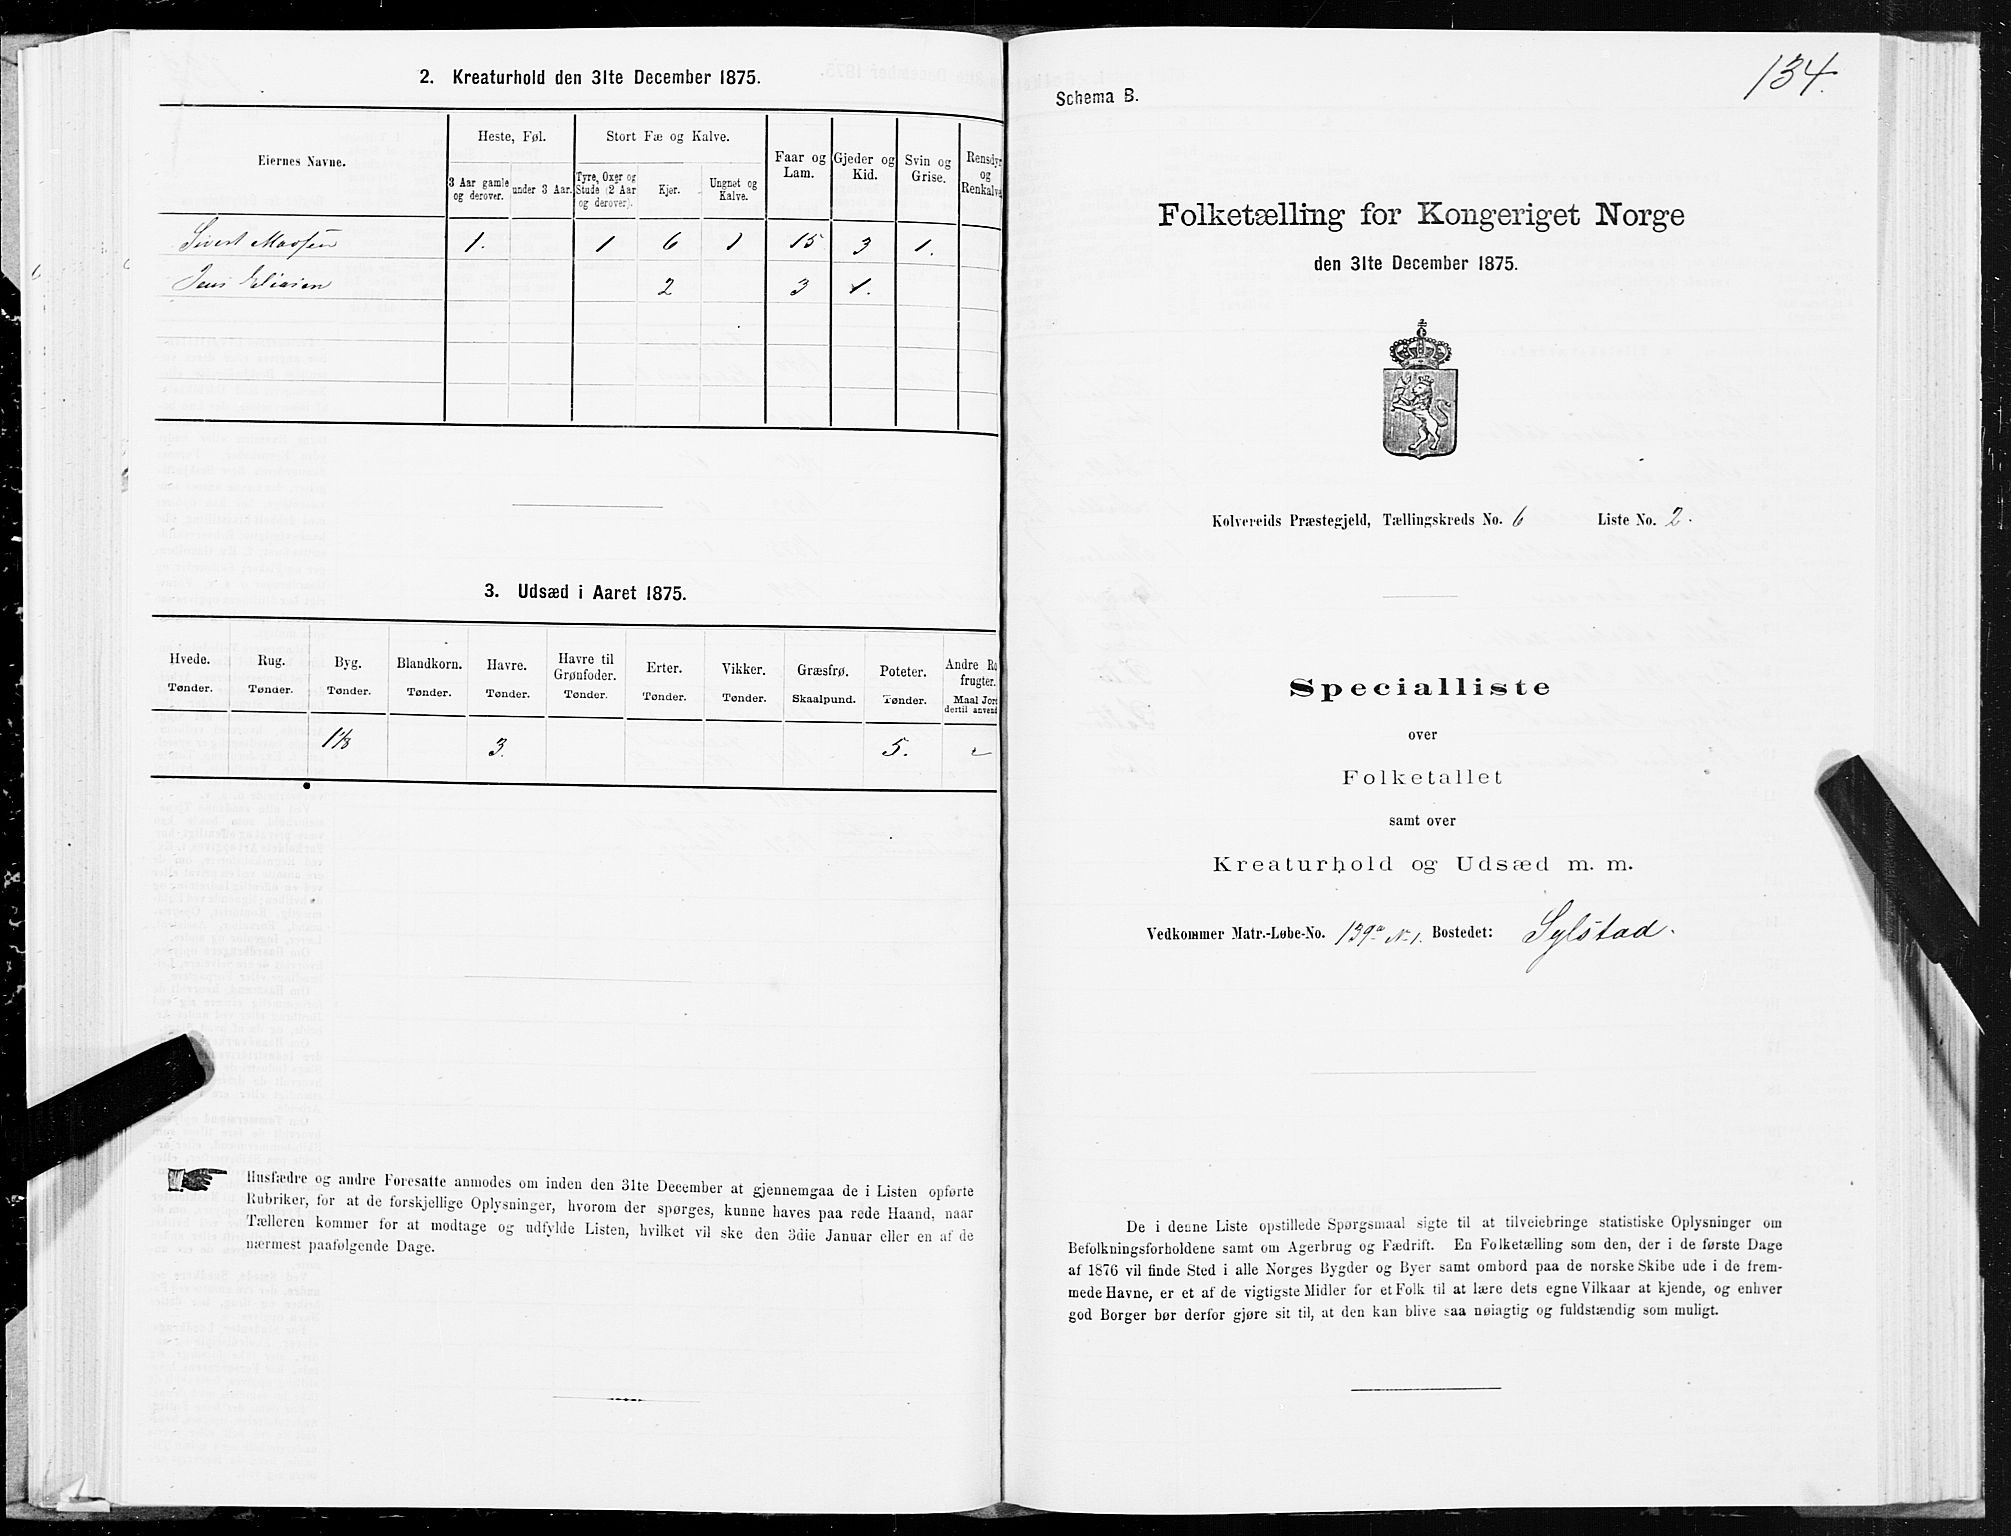 2. Kreaturhold den 31te December 1875.
Eiernes Navne.
Heste, Føl.
Stort Fæ og Kalve.
Faar og Lam.
Gjeder og Kid.
Svin og Grise.
Rensdyr og Renkalve
3 Aar gamle og derover.
under 3 Aar.
Tyre, Oxer og Stude (2 Aar og derover).
Kjør.
Ungnøt og Kalve.
Sivert 1. 1 6 1 15 3 1.
Jens Eliasen 2 3 1.
3. Udsæd i Aaret 1875.
Hvede. Rug. Byg. Blandkorn. Havre. Havre til Grønfoder. Erter. Vikker. Græsfrø. Poteter. Andre Ro frugter.
Tønder. Tønder. Tønder. Tønder. Tønder. Tønder. Tønder. Tønder. Skaalpund. Tønder. Maal Jord dertil anvend
3. 5.
Husfædre og andre Foresatte anmodes om inden den 31te December at gjennemgaa de i Listen opførte
Rubriker, for at de forskjellige Oplysninger, hvorom der spørges, kunne haves paa rede Haand, naar
Tælleren kommer for at modtage og udfylde Listen, hvilket vil ske den 3die Januar eller en af de
nærmest paafølgende Dage.
134.
Schema B.
Folketælling for Kongeriget Norge
den 31te December 1875.
Kolvereids Præstegjeld, Tællingskreds No. 6 Liste No. 2.
Specialliste
over
Folketallet
samt over
Kreaturhold og Udsæd m. m.
Vedkommer Matr.-Løbe-No. 139a N. 1. Bostedet: Sylstad.
De i denne Liste opstillede Spørgsmaal sigte til at tilveiebringe statistiske Oplysninger om
Befolkningsforholdene samt om Agerbrug og Fædrift. En Folketælling som den, der i de første Dage
af 1876 vil finde Sted i alle Norges Bygder og Byer samt ombord paa de norske Skibe ude i de frem-
mede Havne, er et af de vigtigste Midler for et Folk til at lære dets egne Vilkaar at kjende, og enhver
god Borger bør derfor gjøre sit til, at den kan blive saa nøiagtig og fuldstændig som muligt.